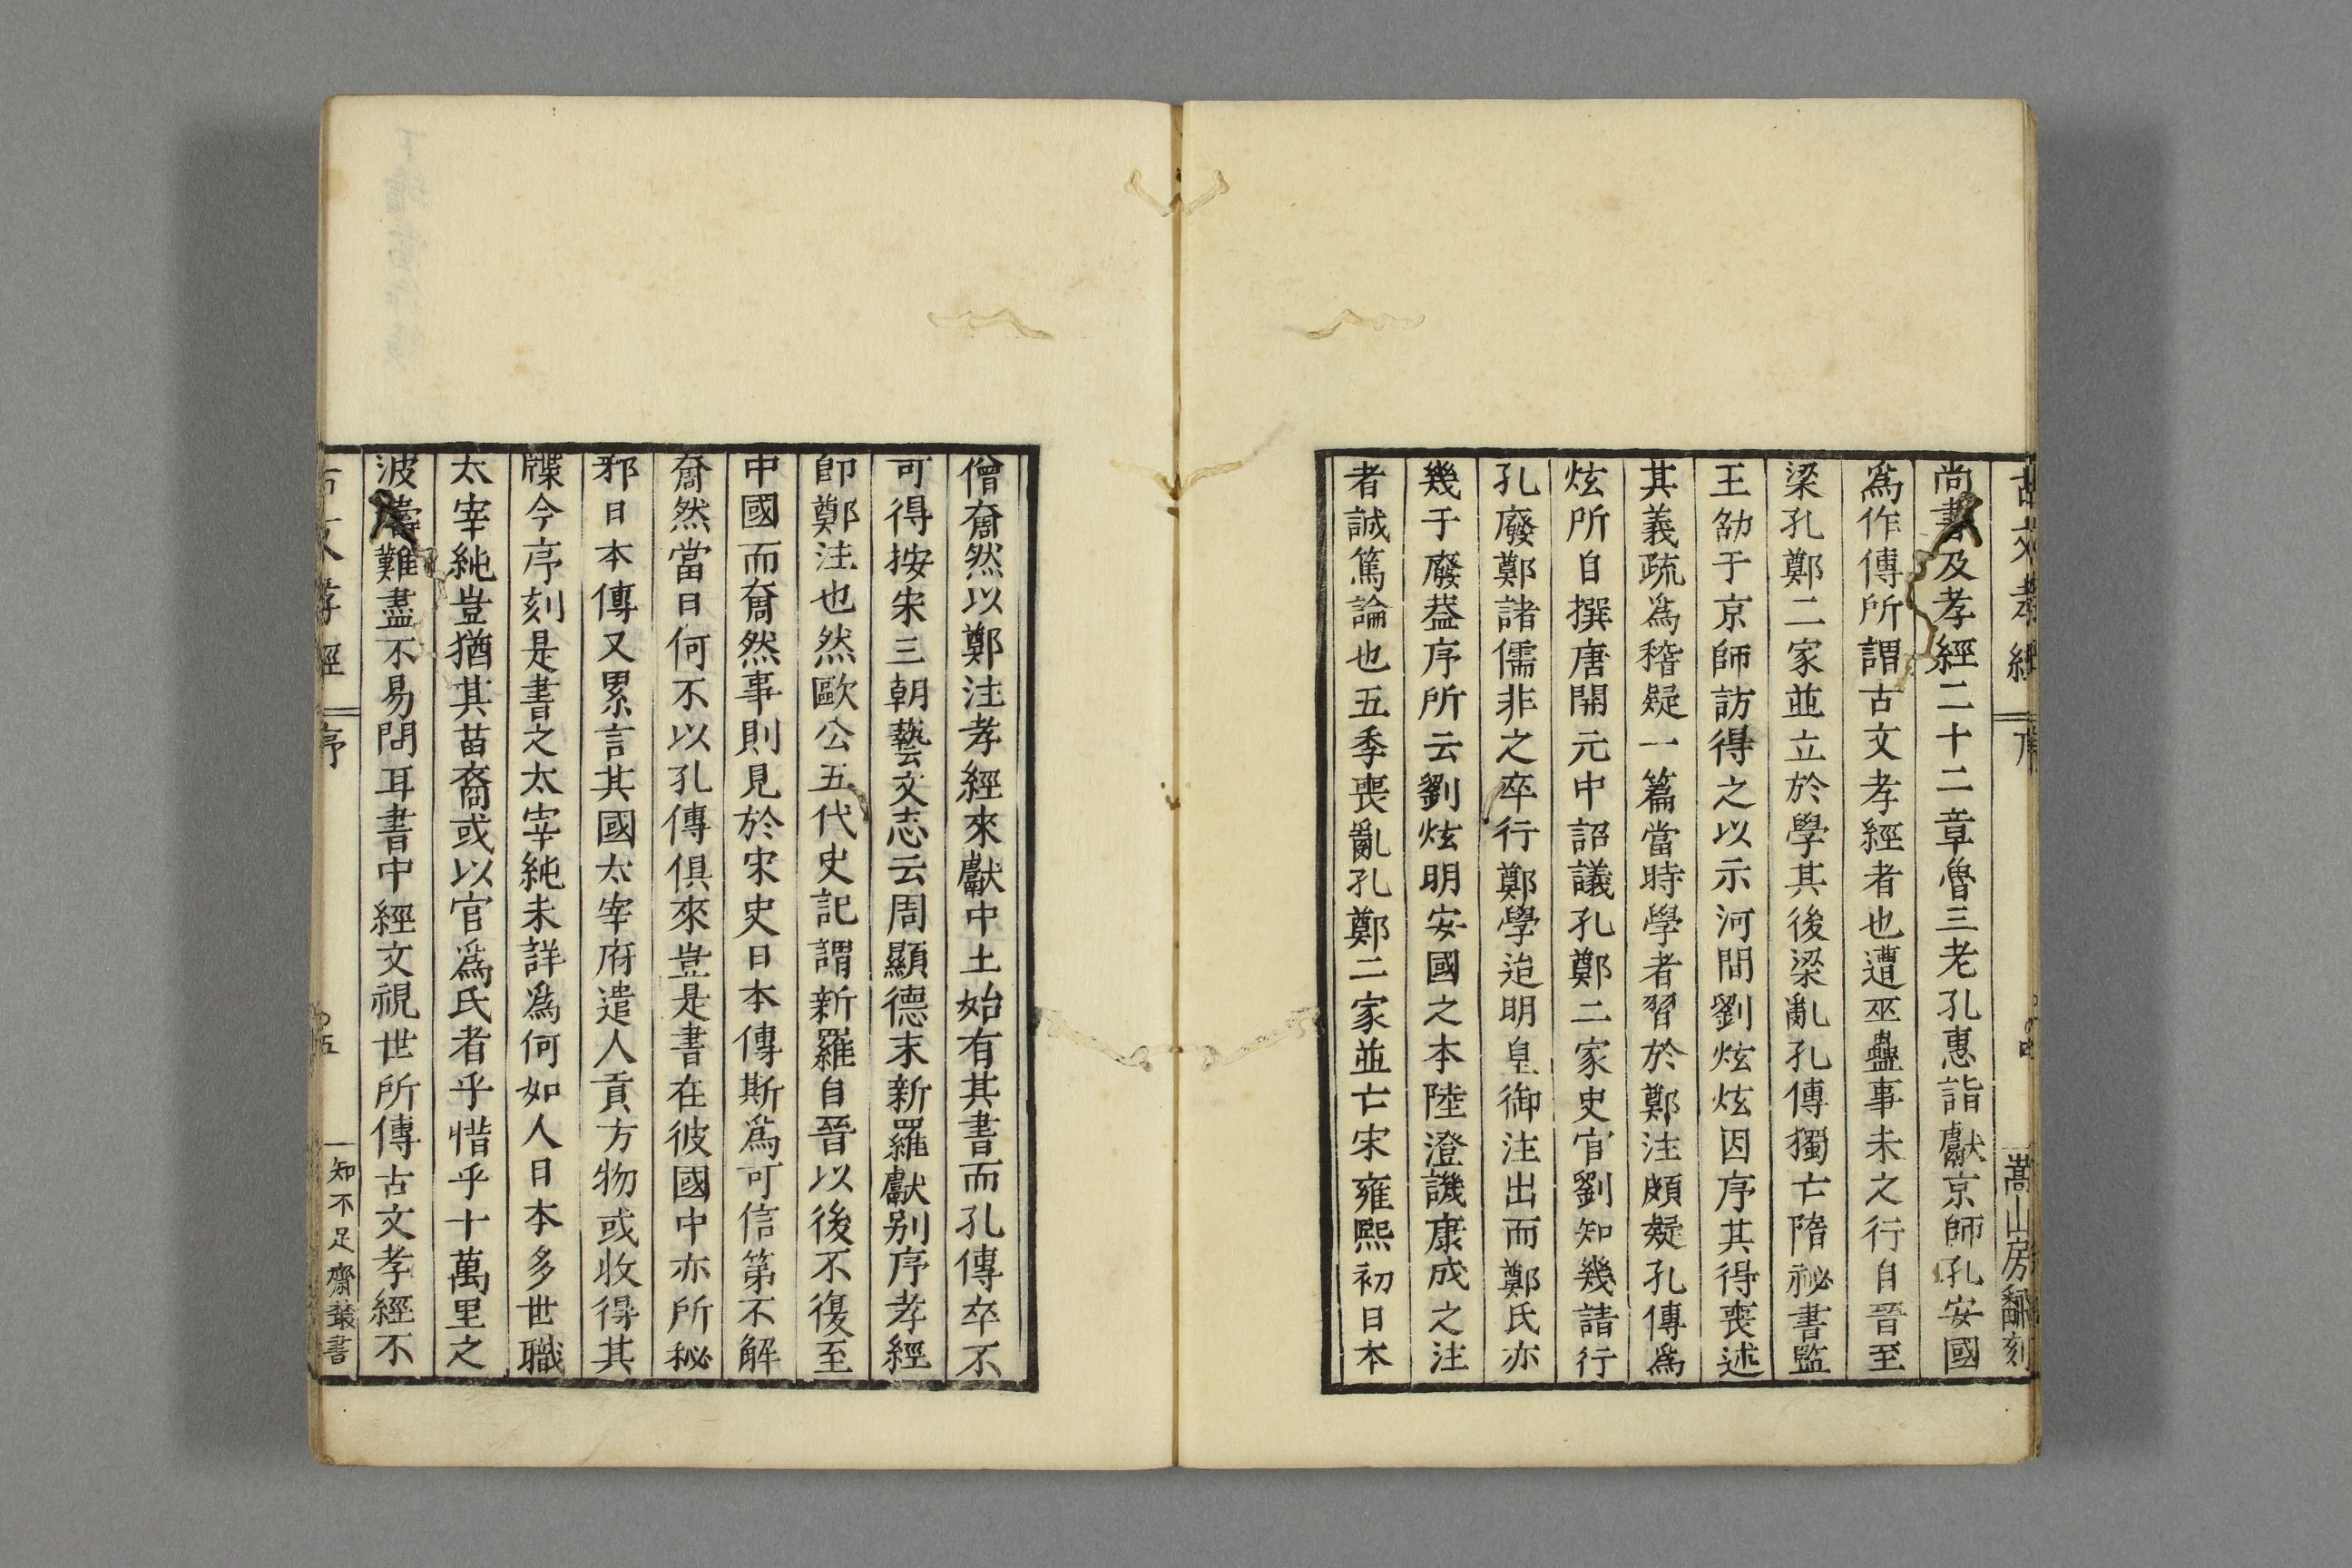 古文孝經 序 嵩山房翻刻
尚書及孝經二十二章魯三老孔惠詣獻京師孔安國
爲作傳所謂古文孝經者也遭巫蠱事未之行自晉至
梁孔鄭二家並立於學其後梁亂孔傳獨亡隋祕書監
王劭于京師訪得之以示河間劉炫炫因序其得喪述
其義疏爲稽疑一篇當時學者習於鄭注頗疑孔傳爲
炫所自撰唐開元中詔議孔鄭二家史官劉知幾請行
孔廢鄭諸儒非之卒行鄭學迨明皇御注出而鄭氏亦
幾于廢葢序所云劉炫明安國之本陸澄譏康成之注
者誠篤論也五季喪亂孔鄭二家並亡宋雍熙初日本
僧奝然以鄭注孝經來獻中土始有其書而孔傳卒不
可得按宋三朝藝文志云周顯德末新羅獻别序孝經
卽鄭注也然歐公五代史記謂新羅自晉以後不復至
中國而奝然事則見於宋史日本傳斯爲可信第不解
奝然當日何不以孔傳俱來豈是書在彼國中亦所秘
邪日本傳又累言其國太宰府遣人貢方物或收得其
牒今序刻是書之太宰純未詳爲何如人日本多世職
太宰純豈猶其苗裔或以官爲氏者乎惜乎十萬里之
波濤難盡不易問耳書中經文視世所傳古文孝經不
古文孝經 序 五 知不足齋叢書